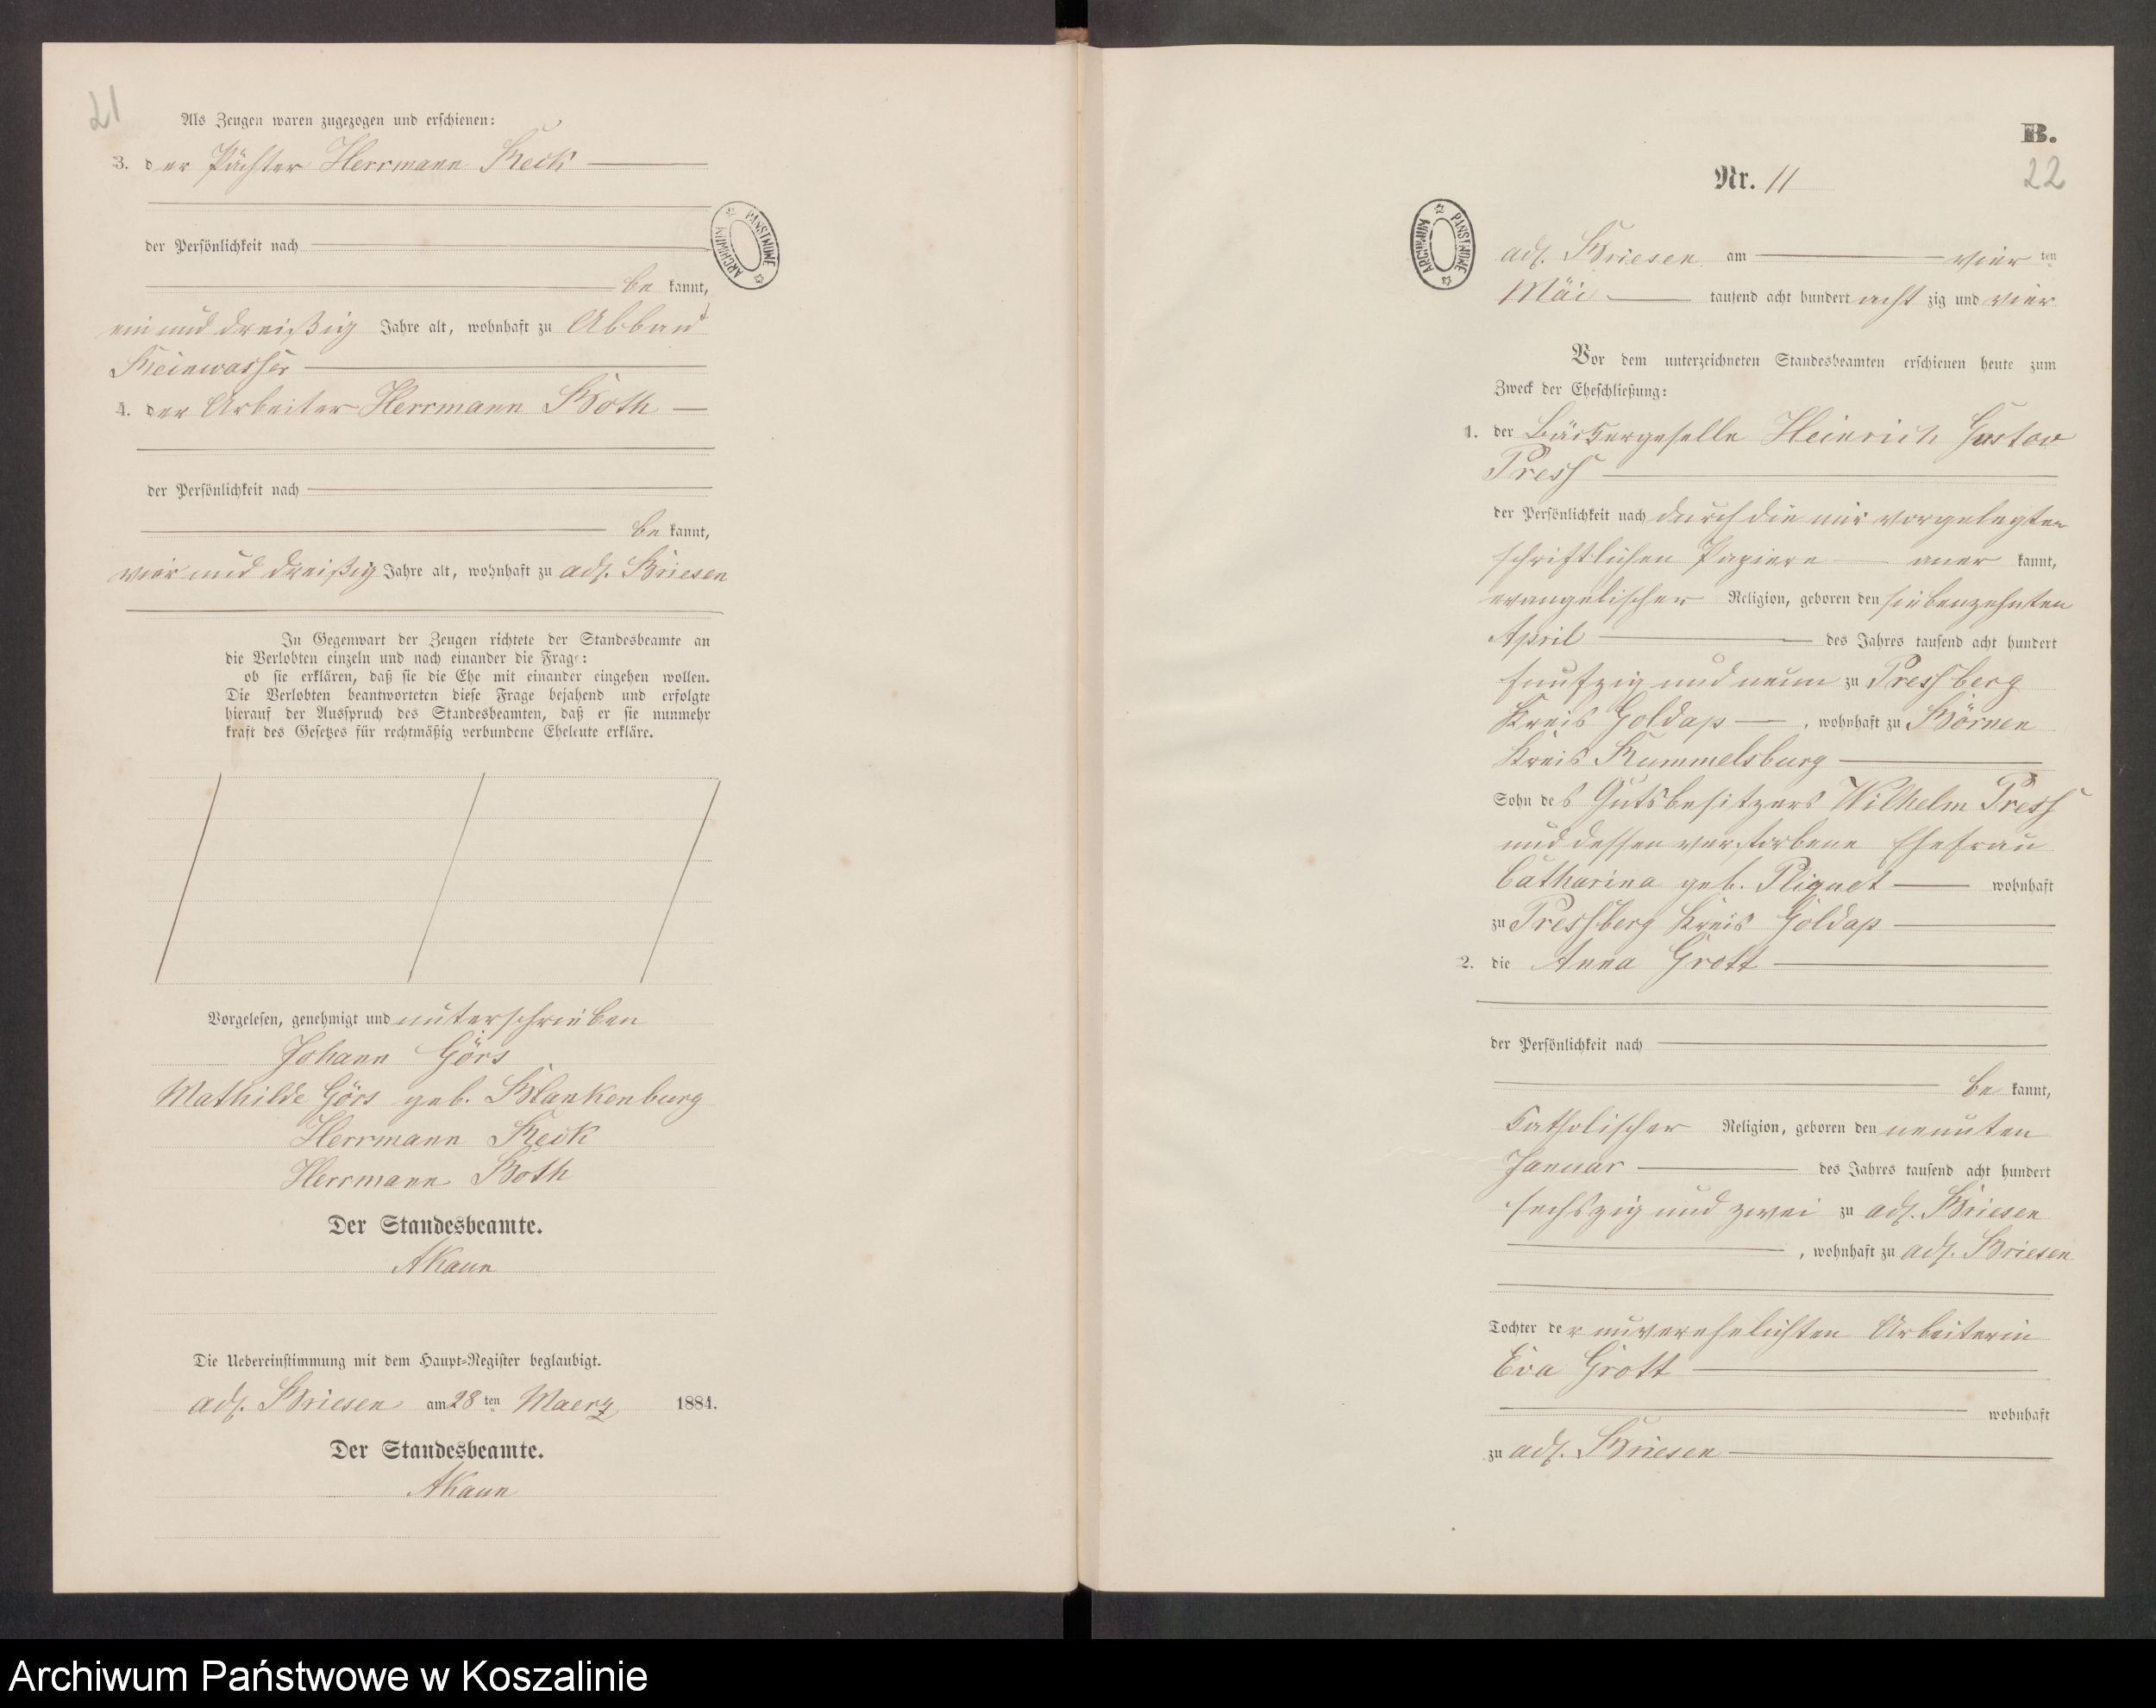 21
Als Zeugen waren zugezogen und erschienen:
3. der Pächter Herrmann Reck
der Persönlichkeit nach
be kannt,
ein und dreißig Jahre alt, wohnhaft zu Abbau
Reinwasser
4. der Arbeiter Herrmann Both
der Persönlichkeit nach
be kannt,
vier und dreißig Jahre alt, wohnhaft zu adl. Briesen
In Gegenwart der Zeugen richtete der Standesbeamte an
die Verlobten einzeln und nach einander die Frage:
ob sie erklären, daß sie die Ehe mit einander eingehen wollen.
Die Verlobten beantworteten diese Frage bejahend und erfolgte
hierauf der Ausspruch des Standesbeamten, daß er sie nunmehr
kraft des Gesetzes für rechtmäßig verbundene Eheleute erkläre.
Vorgelesen, genehmigt und unterschrieben
Johann Görs
Mathilde Görs geb. Blankenburg
Herrmann Reck
Herrmann Both
Der Standesbeamte.
AKaun
Die Uebereinstimmung mit dem Haupt-Register beglaubigt.
adl. Briesen am 28 ten Maerz 1884.
Der Standesbeamte.
AKaun
ARCHIWUM PAŃSTWOWE
B.
22
Nr. 11
ARCHIWUM PAŃSTWOWE
adl. Briesen am vier ten
Mai tausend acht hundert acht zig und vier
Vor dem unterzeichneten Standesbeamten erschienen heute zum
Zweck der Eheschließung:
1. der Bäckergeselle Heinrich Gustav
Press
der Persönlichkeit nach durch die mir vorgelegten
schriftlichen Papiere aner kannt,
evangelischer Religion, geboren den siebenzehnten
April des Jahres tausend acht hundert
funfzig und neun zu Pressberg
Kreis Goldap, wohnhaft zu Börnen
Kreis Rummelsburg
Sohn des Gutsbesitzers Wilhelm Press
und dessen verstorbene Ehefrau
Catharina geb. Pliquet wohnhaft
zu Pressberg Kreis Goldap
2. die Anna Grott
der Persönlichkeit nach
be kannt,
katholischer Religion, geboren den neunten
Januar des Jahres tausend acht hundert
sechszig und zwei zu adl. Briesen
, wohnhaft zu adl. Briesen
Tochter der unverehelichten Arbeiterin
Eva Grott
wohnhaft
zu adl. Briesen
Archiwum Państwowe w Koszalinie